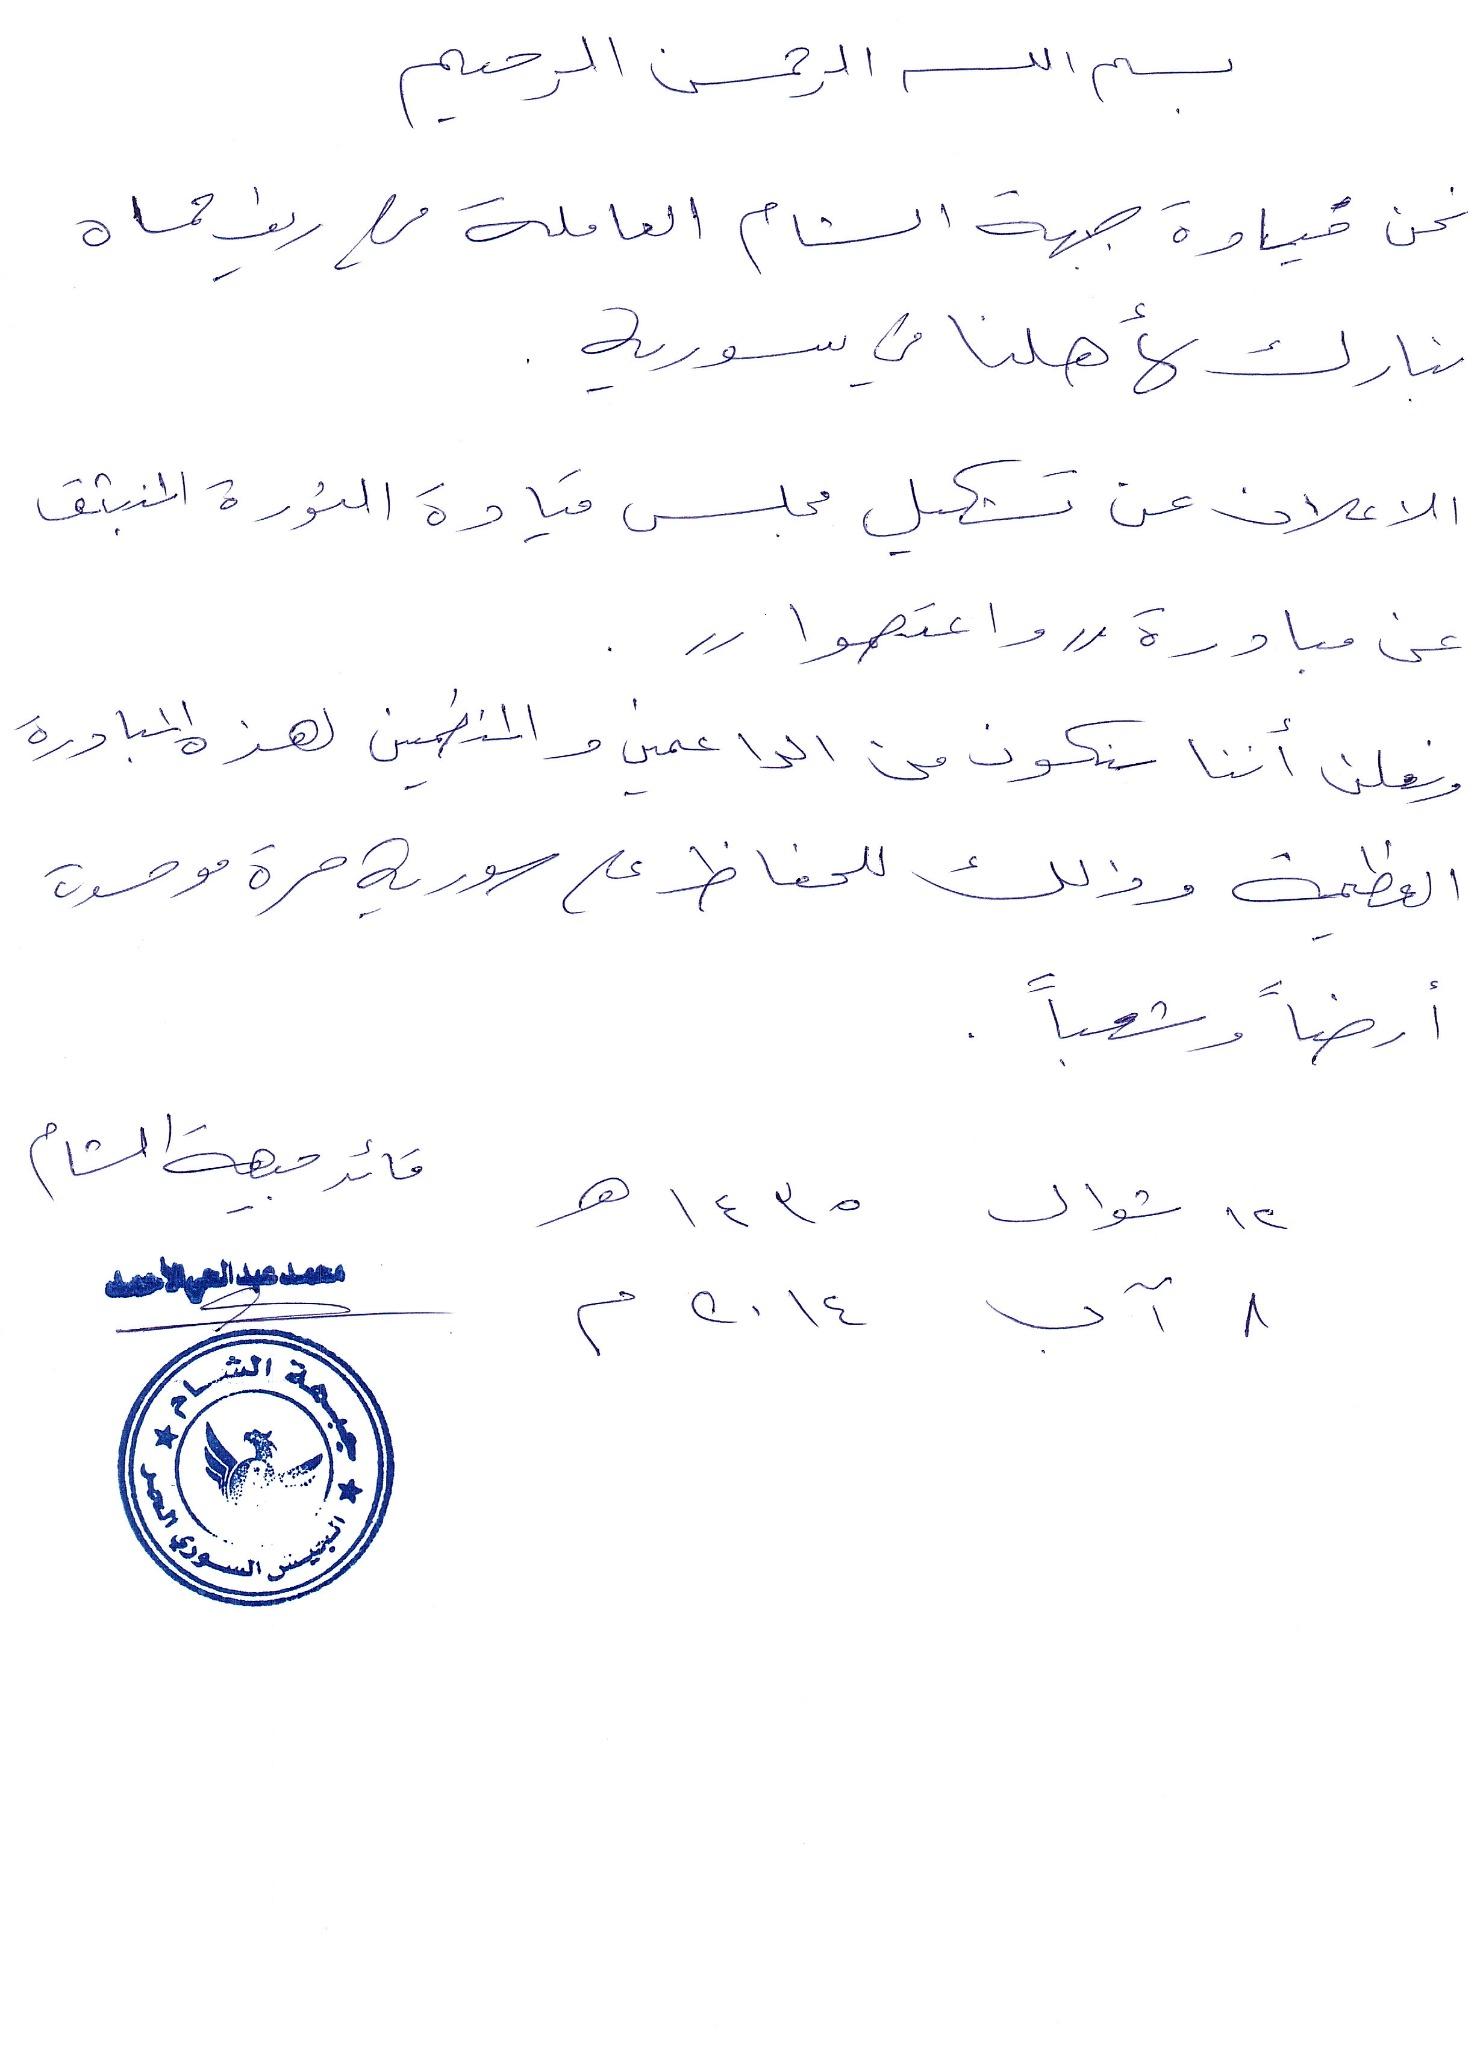 بسم الله الرحمن الرحيم
نحن قيادة جبهة الشام العاملة في ريف حماه
نبارك لأهلنا في سورية .
الاعلان عن تشكيل مجلس قيادة الثورة المنبثق
عن مبادرة " واعتصموا " .
ونعلن أننا سنكون من الداعمين والمنظمين لهذه المبادرة
العظيمة وذلك للحفاظ على سورية حرة موحدة
أرضاً وشعباً .
قائد جبهة الشام
١٢ شوال ١٤٣٥ هـ
محمد عبد الحي الأحمد
٨ آب ٢٠١٤ م
جبهة الشام
الجيش السوري الحر